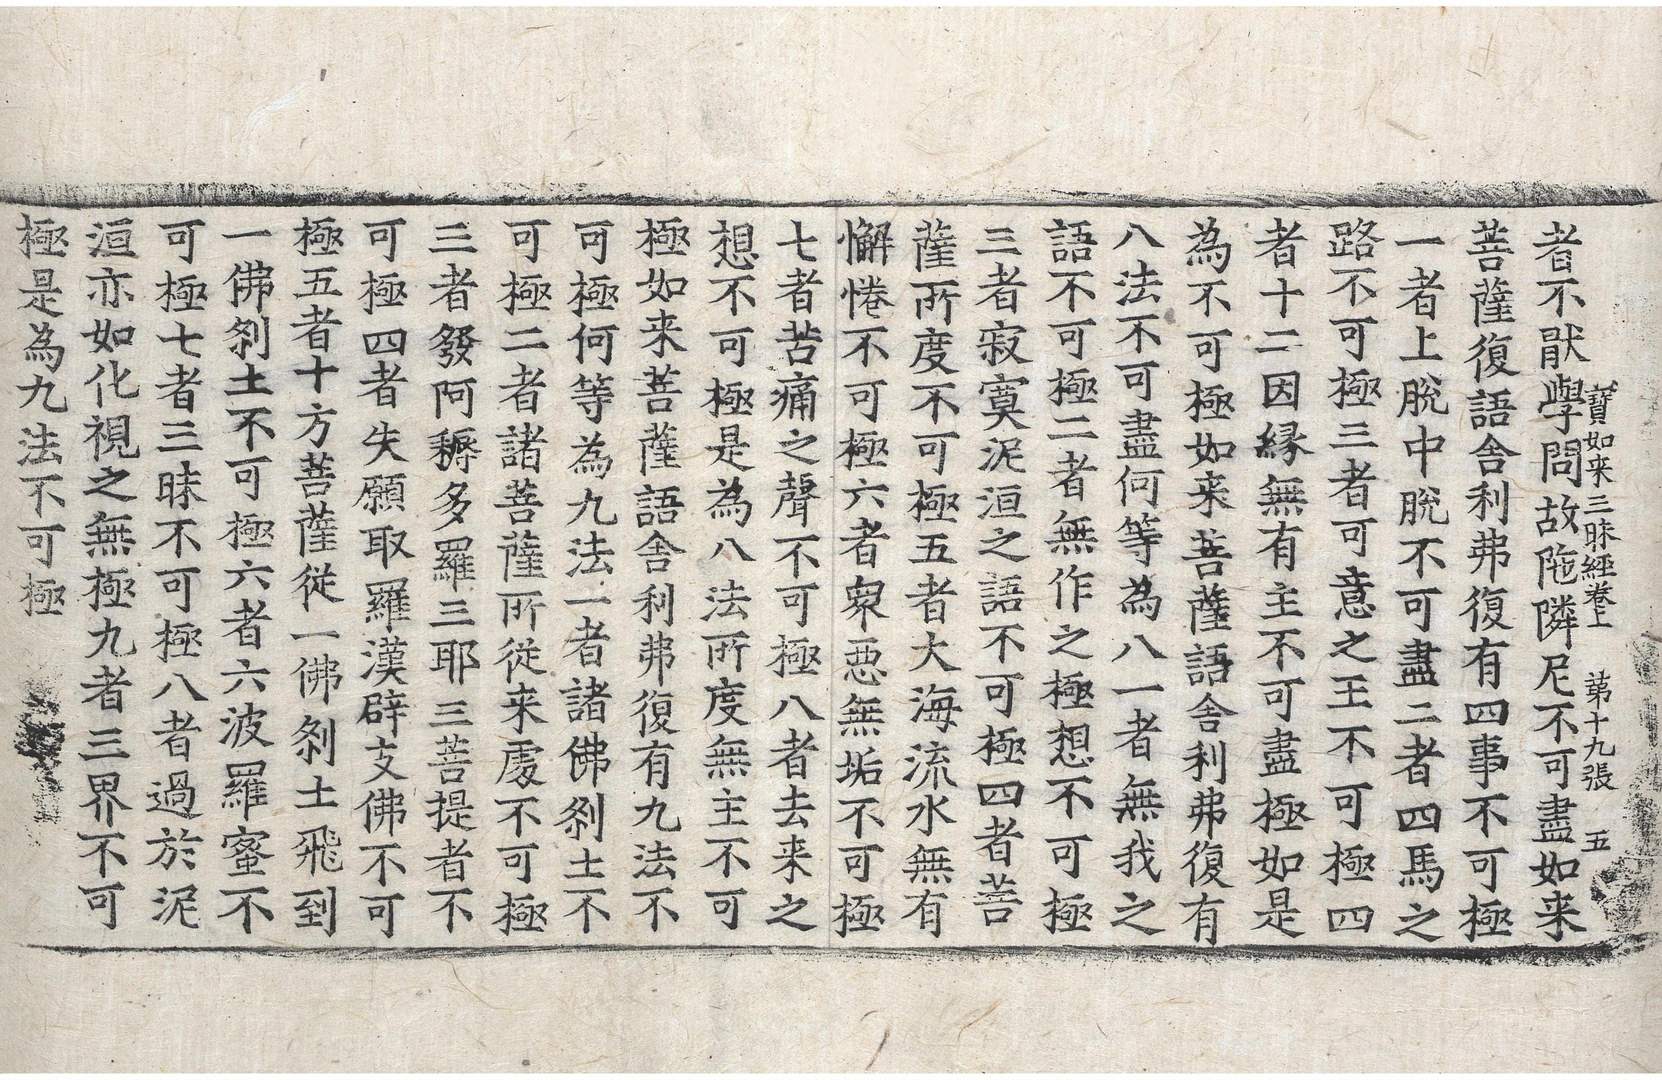 寶如来三昧經卷上　第十九張　五
者不猒學問故陁隣尼不可盡如来
菩薩復語舍利弗復有四事不可極
一者上脫中脫不可盡二者四馬之
路不可極三者可意之王不可極四
者十二因緣無有主不可盡極如是
為不可極如来菩薩語舍利弗復有
八法不可盡何等為八一者無我之
語不可極二者無作之極想不可極
三者寂寞泥洹之語不可極四者菩
薩所度不可極五者大海流水無有
懈惓不可極六者衆惡無垢不可極
七者苦痛之聲不可極八者去来之
想不可極是為八法所度無主不可
極如来菩薩語舍利弗復有九法不
可極何等為九法一者諸佛剎土不
可極二者諸菩薩所從来處不可極
三者發阿耨多羅三耶三菩提者不
可極四者失願取羅漢辟支佛不可
極五者十方菩薩從一佛剎土飛到
一佛剎土不可極六者六波羅蜜不
可極七者三昧不可極八者過於泥
洹亦如化視之無極九者三界不可
極是為九法不可極